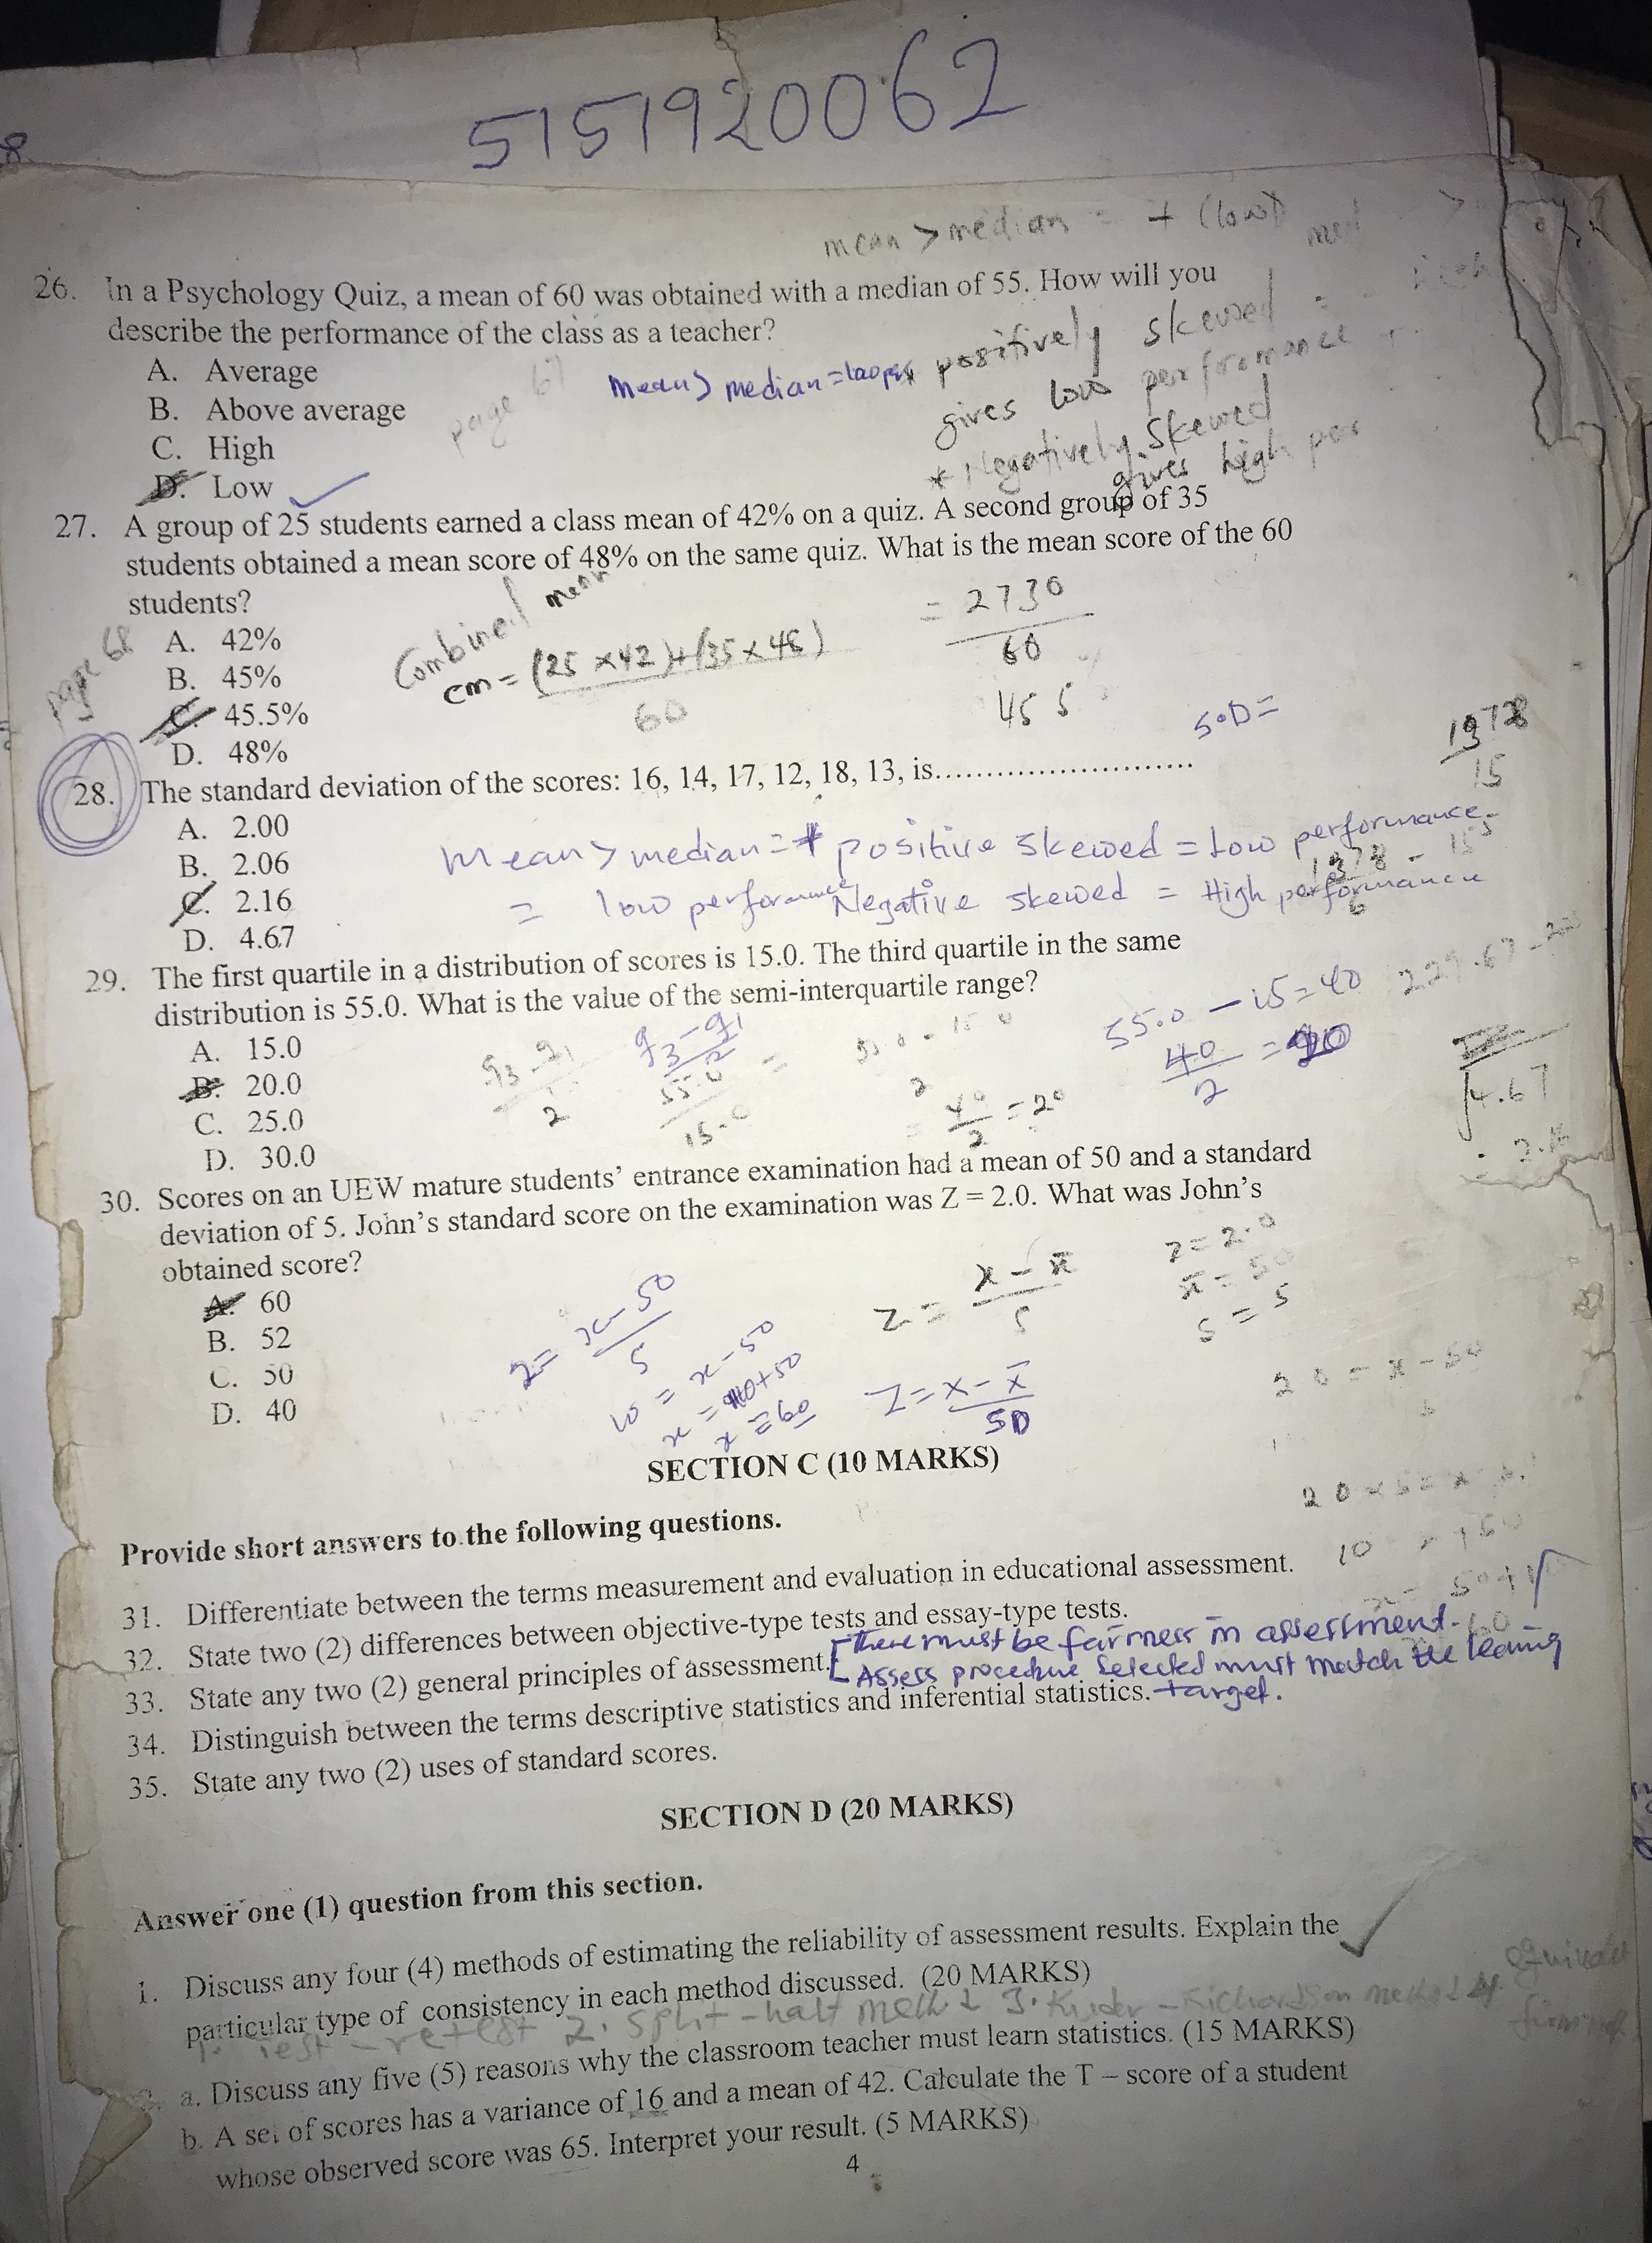 5151920062
mean > median = + (low)
26. In a Psychology Quiz, a mean of 60 was obtained with a median of 55. How will you
describe the performance of the class as a teacher?
A. Average
B. Above average
C. High
D. Low
mean > median =
positively skewed
gives low performance
* Negatively skewed
gives high per
page
27. A group of 25 students earned a class mean of 42% on a quiz. A second group of 35
students obtained a mean score of 48% on the same quiz. What is the mean score of the 60
students?
A. 42%
B. 45%
C. 45.5%
D. 48%
page 68
Combined mean
cm = (25 × 42) + (35 × 48)
60
= 2730
60
45 5
28. The standard deviation of the scores: 16, 14, 17, 12, 18, 13, is..........................
S.D =
1378
15
A. 2.00
B. 2.06
C. 2.16
D. 4.67
mean > median = + positive skewed = Low performance
= low performance Negative skewed = High performance
1378 - 15
6
29. The first quartile in a distribution of scores is 15.0. The third quartile in the same
distribution is 55.0. What is the value of the semi-interquartile range?
A. 15.0
B. 20.0
C. 25.0
D. 30.0
q3 - q1
2
q3 - q1
2
55.0
15.0
=
40
2
= 20
55.0 - 15 = 40
40
2
= 20
229.67 -
√4.67
30. Scores on an UEW mature students’ entrance examination had a mean of 50 and a standard
deviation of 5. John’s standard score on the examination was Z = 2.0. What was John’s
obtained score?
A. 60
B. 52
C. 50
D. 40
2 = x - 50
5
10 = x - 50
x = 10 + 50
x = 60
Z = x - x̄
5
Z = x - x̄
SD
z = 2.0
x̄ = 50
s = 5
2 0 = x - 50
5
SECTION C (10 MARKS)
Provide short answers to the following questions.
31. Differentiate between the terms measurement and evaluation in educational assessment.
32. State two (2) differences between objective-type tests and essay-type tests.
33. State any two (2) general principles of assessment.
[There must be fairness in assessment.
Assess procedure selected must match the leaning
target.
34. Distinguish between the terms descriptive statistics and inferential statistics.
35. State any two (2) uses of standard scores.
SECTION D (20 MARKS)
Answer one (1) question from this section.
1. Discuss any four (4) methods of estimating the reliability of assessment results. Explain the
particular type of consistency in each method discussed. (20 MARKS)
1. Test - retest 2. Split - half method 3. Kuder - Richardson method
a. Discuss any five (5) reasons why the classroom teacher must learn statistics. (15 MARKS)
b. A set of scores has a variance of 16 and a mean of 42. Calculate the T – score of a student
whose observed score was 65. Interpret your result. (5 MARKS)
4